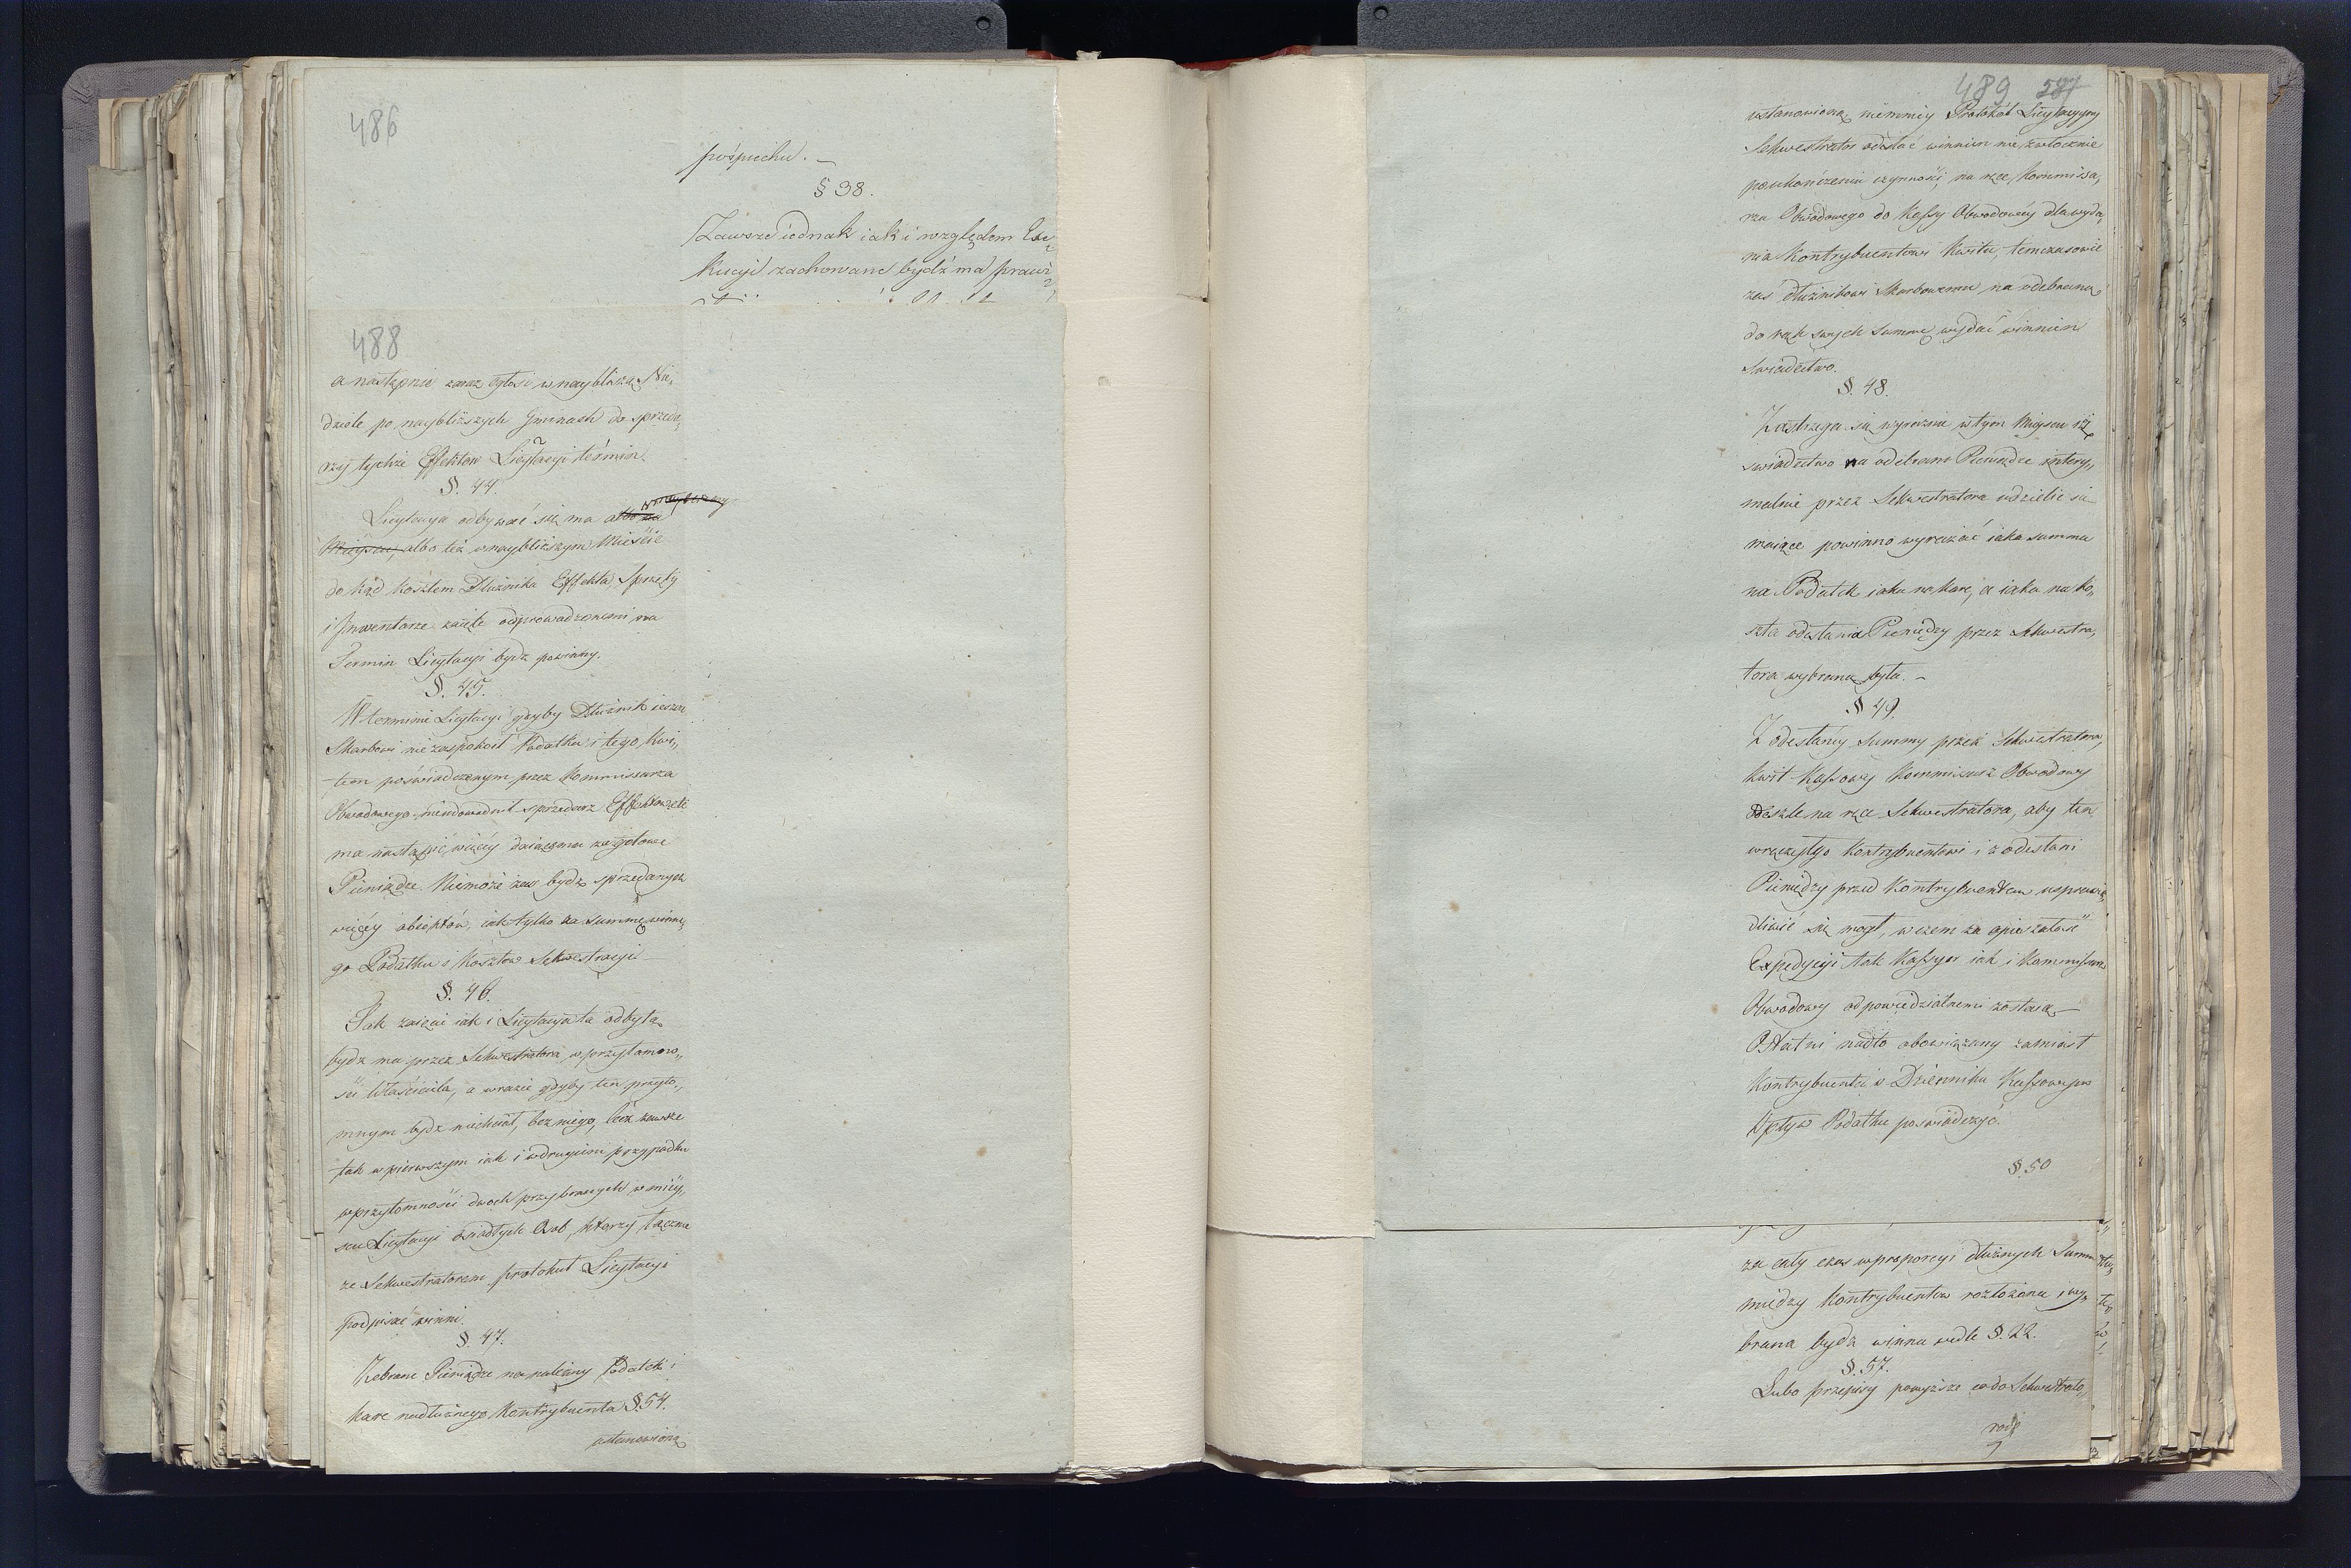 486
pośpiechu. —
§ 38.
Zawsze iednak iak i względem Exe„
kucyi zachowane bydź ma prawi„
488
a nastąpnie zaraz ogłosi w naybliższą Nie„
dziele po naybliższych Gminach do sprzeda„
rzy tychże Effektow Licytacyi termin.
§. 44.
Licytacya odbywać się ma albo na
Mieyscu, albo też w naybliższym Mieście
do kąd kosztem Dłużnika Effekta, Sprzęty
i Inwentarze zaięte odprowadzonemi na
Termin Licytacyi bydz powinny.
§. 45.
W terminie Licytacyi gdyby Dłużnik ieszcze
Skarbowi nie zaspokoił Podatku i tego Kwi„
tem poświadczonym przez Kommissarza
Obwodowego nieudowodnił sprzedarz Effektow
ma nastąpić więcéy daiącemu za gotowe
Pieniądze. Niemoże zaś bydz sprzedanych
więcéy obiektów, iak tylko na summę winne„
go Podatku i Kosztów Sekwestracyi —
§. 46.
Tak zaięcie iak i Licytacya ta odbyta
bydz ma przez Sekwestratora, w przytomno„
ści Właściciela, a w razie gdyby ten przyto„
mnym bydz niechciał, bez niego, lecz zawsze
tak w pierwszym iak i w drugim przypadku
w przytomności dwoch przybranych w miey„
scu Licytacyi osiadłych Osob, ktorzy łącznie
ze Sekwestratorem protokuł Licytacyi
podpisać winni.
§. 47.
Zebrane Pieniądze na należny Podatek i
karę na dłużnego Kontrybuenta §. 54.
ustanowioną
489 587
ustanowioną niemniey Protokół Licytacyyny
Sekwestrator odesłać winnien nie zwłocznie
po ukończeniu czynności, na ręce Kommissa„
rza Obwodowego do Kassy Obwodowéy dla wyda„
nia Kontrybuentowi Kwitu, temczasowie
zaś dłużnikowi Skarbowemu na odebraną
do rąk swych Summę wydać winnien
swiadectwo.
§. 48.
Zastrzega się wyraznie w tym Mieyscu iż
swiadectwo na odebrane Pieniądze intery„
malnie przez Sekwestratora udzielić się
maiące powinno wyrażać iaka summa
na Podatek iaka na karę, a iaka na Ko„
szta odesłania Pieniędzy przez Sekwestra„
tora wybrana była. —
§ 49.
Z odesłanéy Summy przez Sekwestratora,
Kwit Kassowy Kommissarz Obwodowy
odeszle na ręce Sekwestratora, aby ten
wręczył go Kontrybuentowi i z odesłani
Pieniędzy przed Kontrybuentem usprawie„
dliwić się mogł, w czem za opieszałość
Expedycyi tak Kassyer iak i Kommissarz
Obwodowy odpowiedzialnemi zostaią. —
Ostatni nadto obowiązany zamiast
Kontrybuenta w Dzienniku Kassowym
Wpływ Podatku poswiadczyć.
§. 50
za cały czas w proporcyi dłużnych Summ
miedzy Kontrybuentow rozłożona i wy„
brana bydz winna wedle §. 22.
§. 57.
Lubo przepisy powyższe co do Sekwestrato„